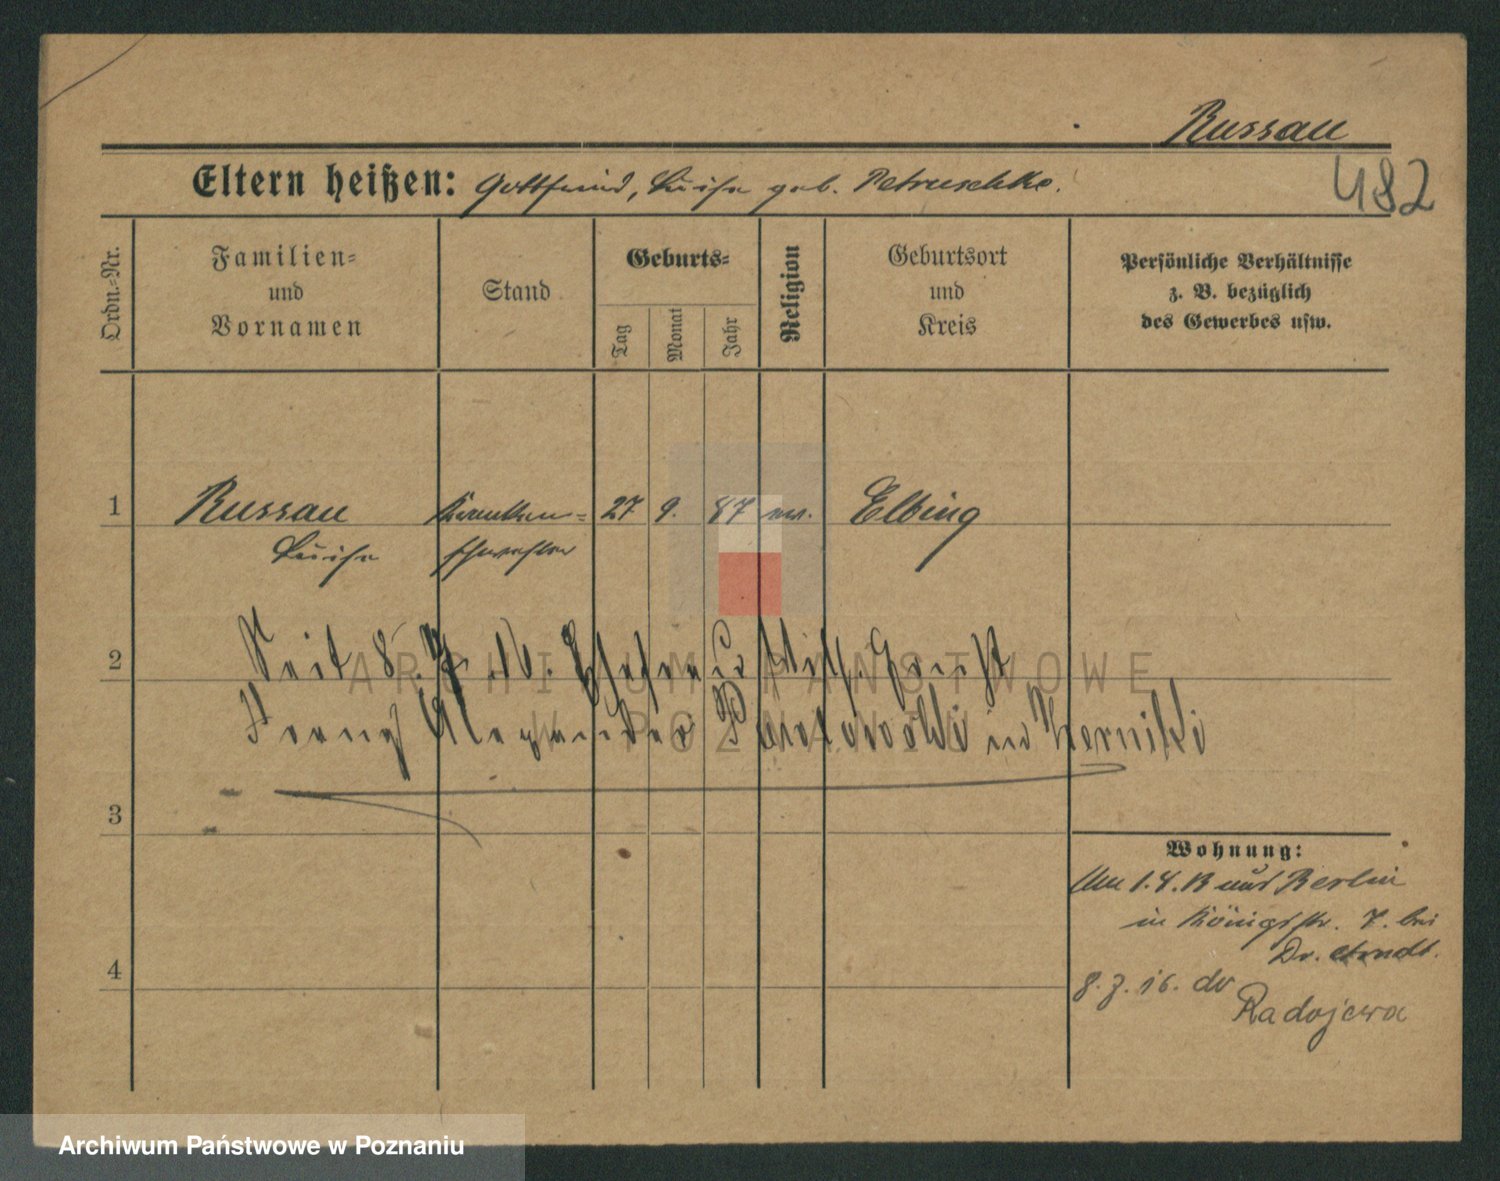 Russau
482
Eltern heißen: Gottfried, Luise geb. Petruschke.
Ordn.-Nr.
Familien-
und
Vornamen
Stand
Geburts-
Tag
Monat
Jahr
Religion
Geburtsort
und
Kreis
Persönliche Verhältnisse
z. B. bezüglich
des Gewerbes usw.
1 Russau Kranken- 27 9. 87 ev. Elbing
Luise schwester
2 Seit 8. 16. Ehefrau
Franz Alexander in
3
Wohnung:
1.4.13 aus Berlin
in Königstr. 7. bei
Dr. Arndt.
4
8. 7. 16. Radojewo
ARCHIWUM PAŃSTWOWE
W POZNANIU
Archiwum Państwowe w Poznaniu